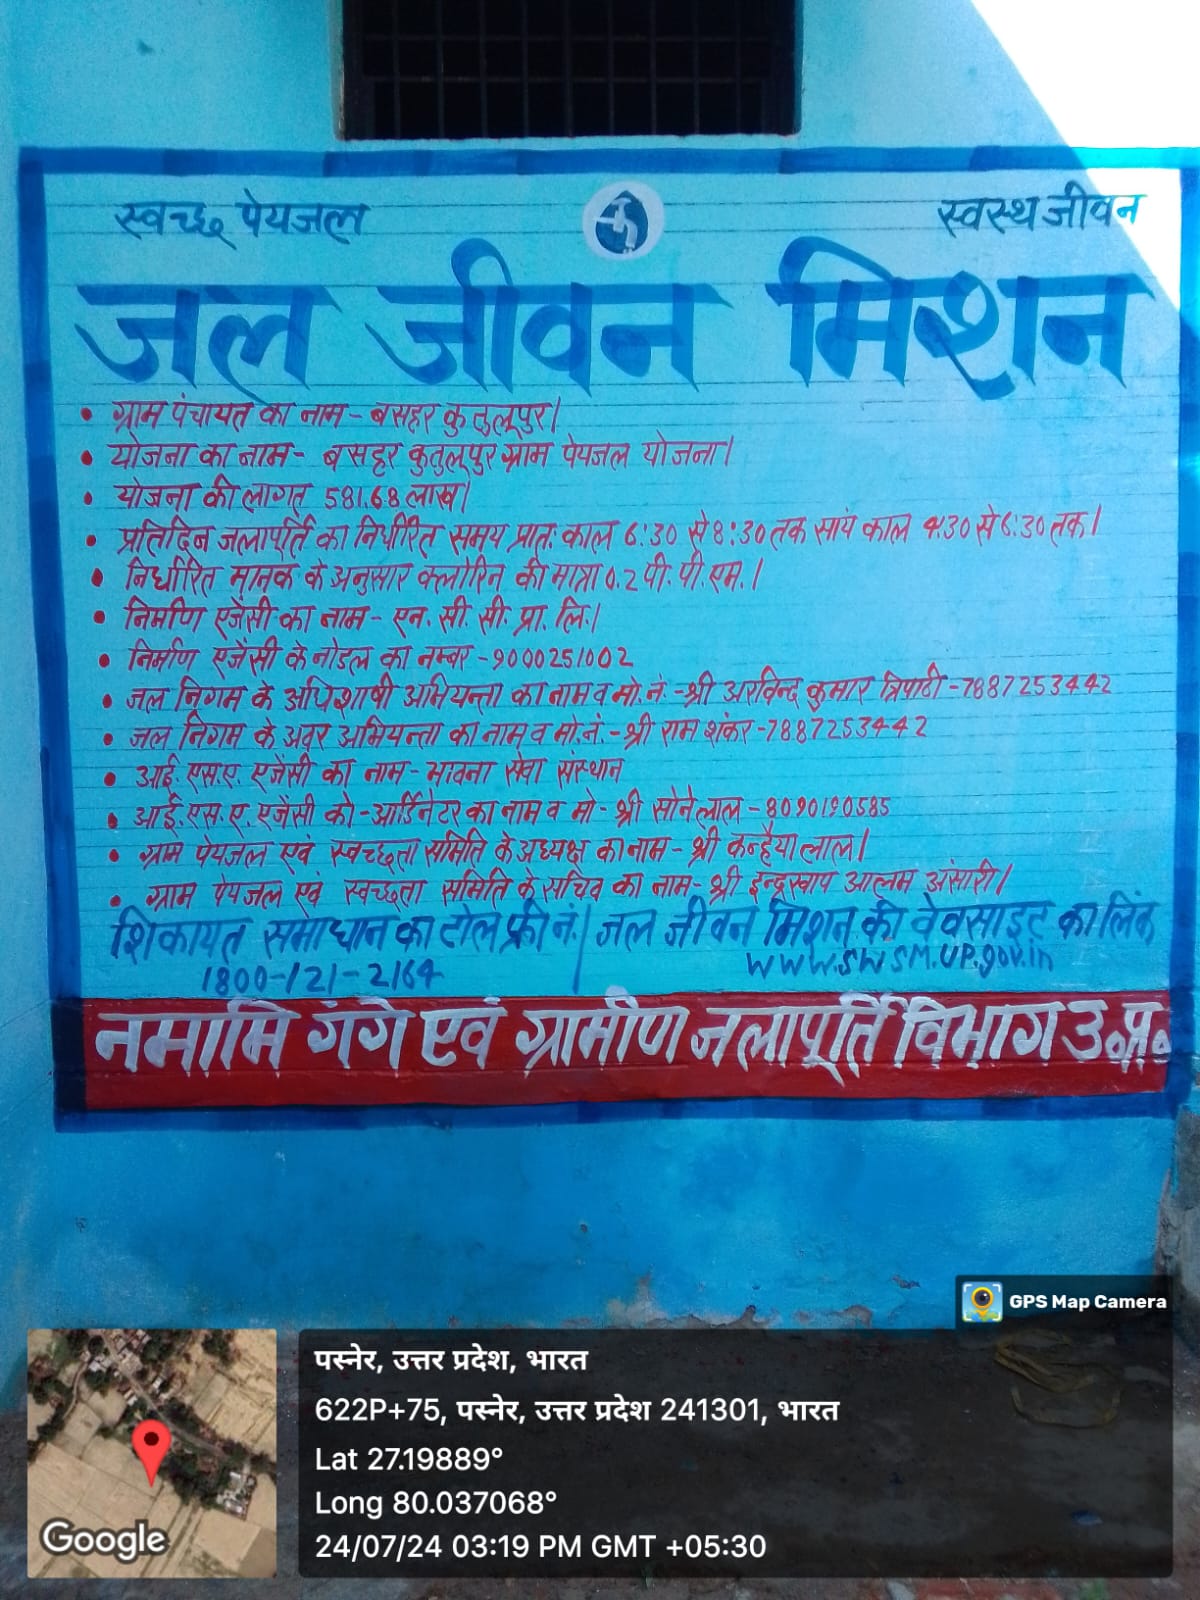 स्वच्छ पेयजल
स्वस्थ जीवन
जल जीवन मिशन
• ग्राम पंचायत का नाम - बसहर कुतुलूपुर।
• योजना का नाम - बसहर कुतुलूपुर ग्राम पेयजल योजना।
• योजना की लागत 581.68 लाख।
• प्रतिदिन जलापूर्ति का निर्धारित समय प्रातः काल 6:30 से 8:30 तक सायं काल 4:30 से 6:30 तक।
• निर्धारित मानक के अनुसार क्लोरिन की मात्रा 0.2 पी. पी. एम.।
• निर्माण एजेंसी का नाम - एन. सी. सी. प्रा. लि.।
• निर्माण एजेंसी के नोडल का नम्बर - 9000251002
• जल निगम के अधिशाषी अभियन्ता का नाम व मो. नं. - श्री अरविन्द कुमार त्रिपाठी - 7887253442
• जल निगम के अवर अभियन्ता का नाम व मो. नं. - श्री राम शंकर - 7887253442
• आई. एस. ए. एजेंसी का नाम - भावना सेवा संस्थान
• आई. एस. ए. एजेंसी को-आर्डिनेटर का नाम व मो - श्री सोनेलाल - 8090190585
• ग्राम पेयजल एवं स्वच्छता समिति के अध्यक्ष का नाम - श्री कन्हैया लाल।
• ग्राम पेयजल एवं स्वच्छता समिति के सचिव का नाम - श्री आलम अंसारी।
शिकायत समाधान का टोल फ्री नं. | जल जीवन मिशन की वेवसाइट का लिंक
1800-121-2164 www.swsm.up.gov.in
नमामि गंगे एवं ग्रामीण जलापूर्ति विभाग उ०प्र०
GPS Map Camera
पस्नेर, उत्तर प्रदेश, भारत
622P+75, पस्नेर, उत्तर प्रदेश 241301, भारत
Lat 27.19889°
Long 80.037068°
24/07/24 03:19 PM GMT +05:30
Google